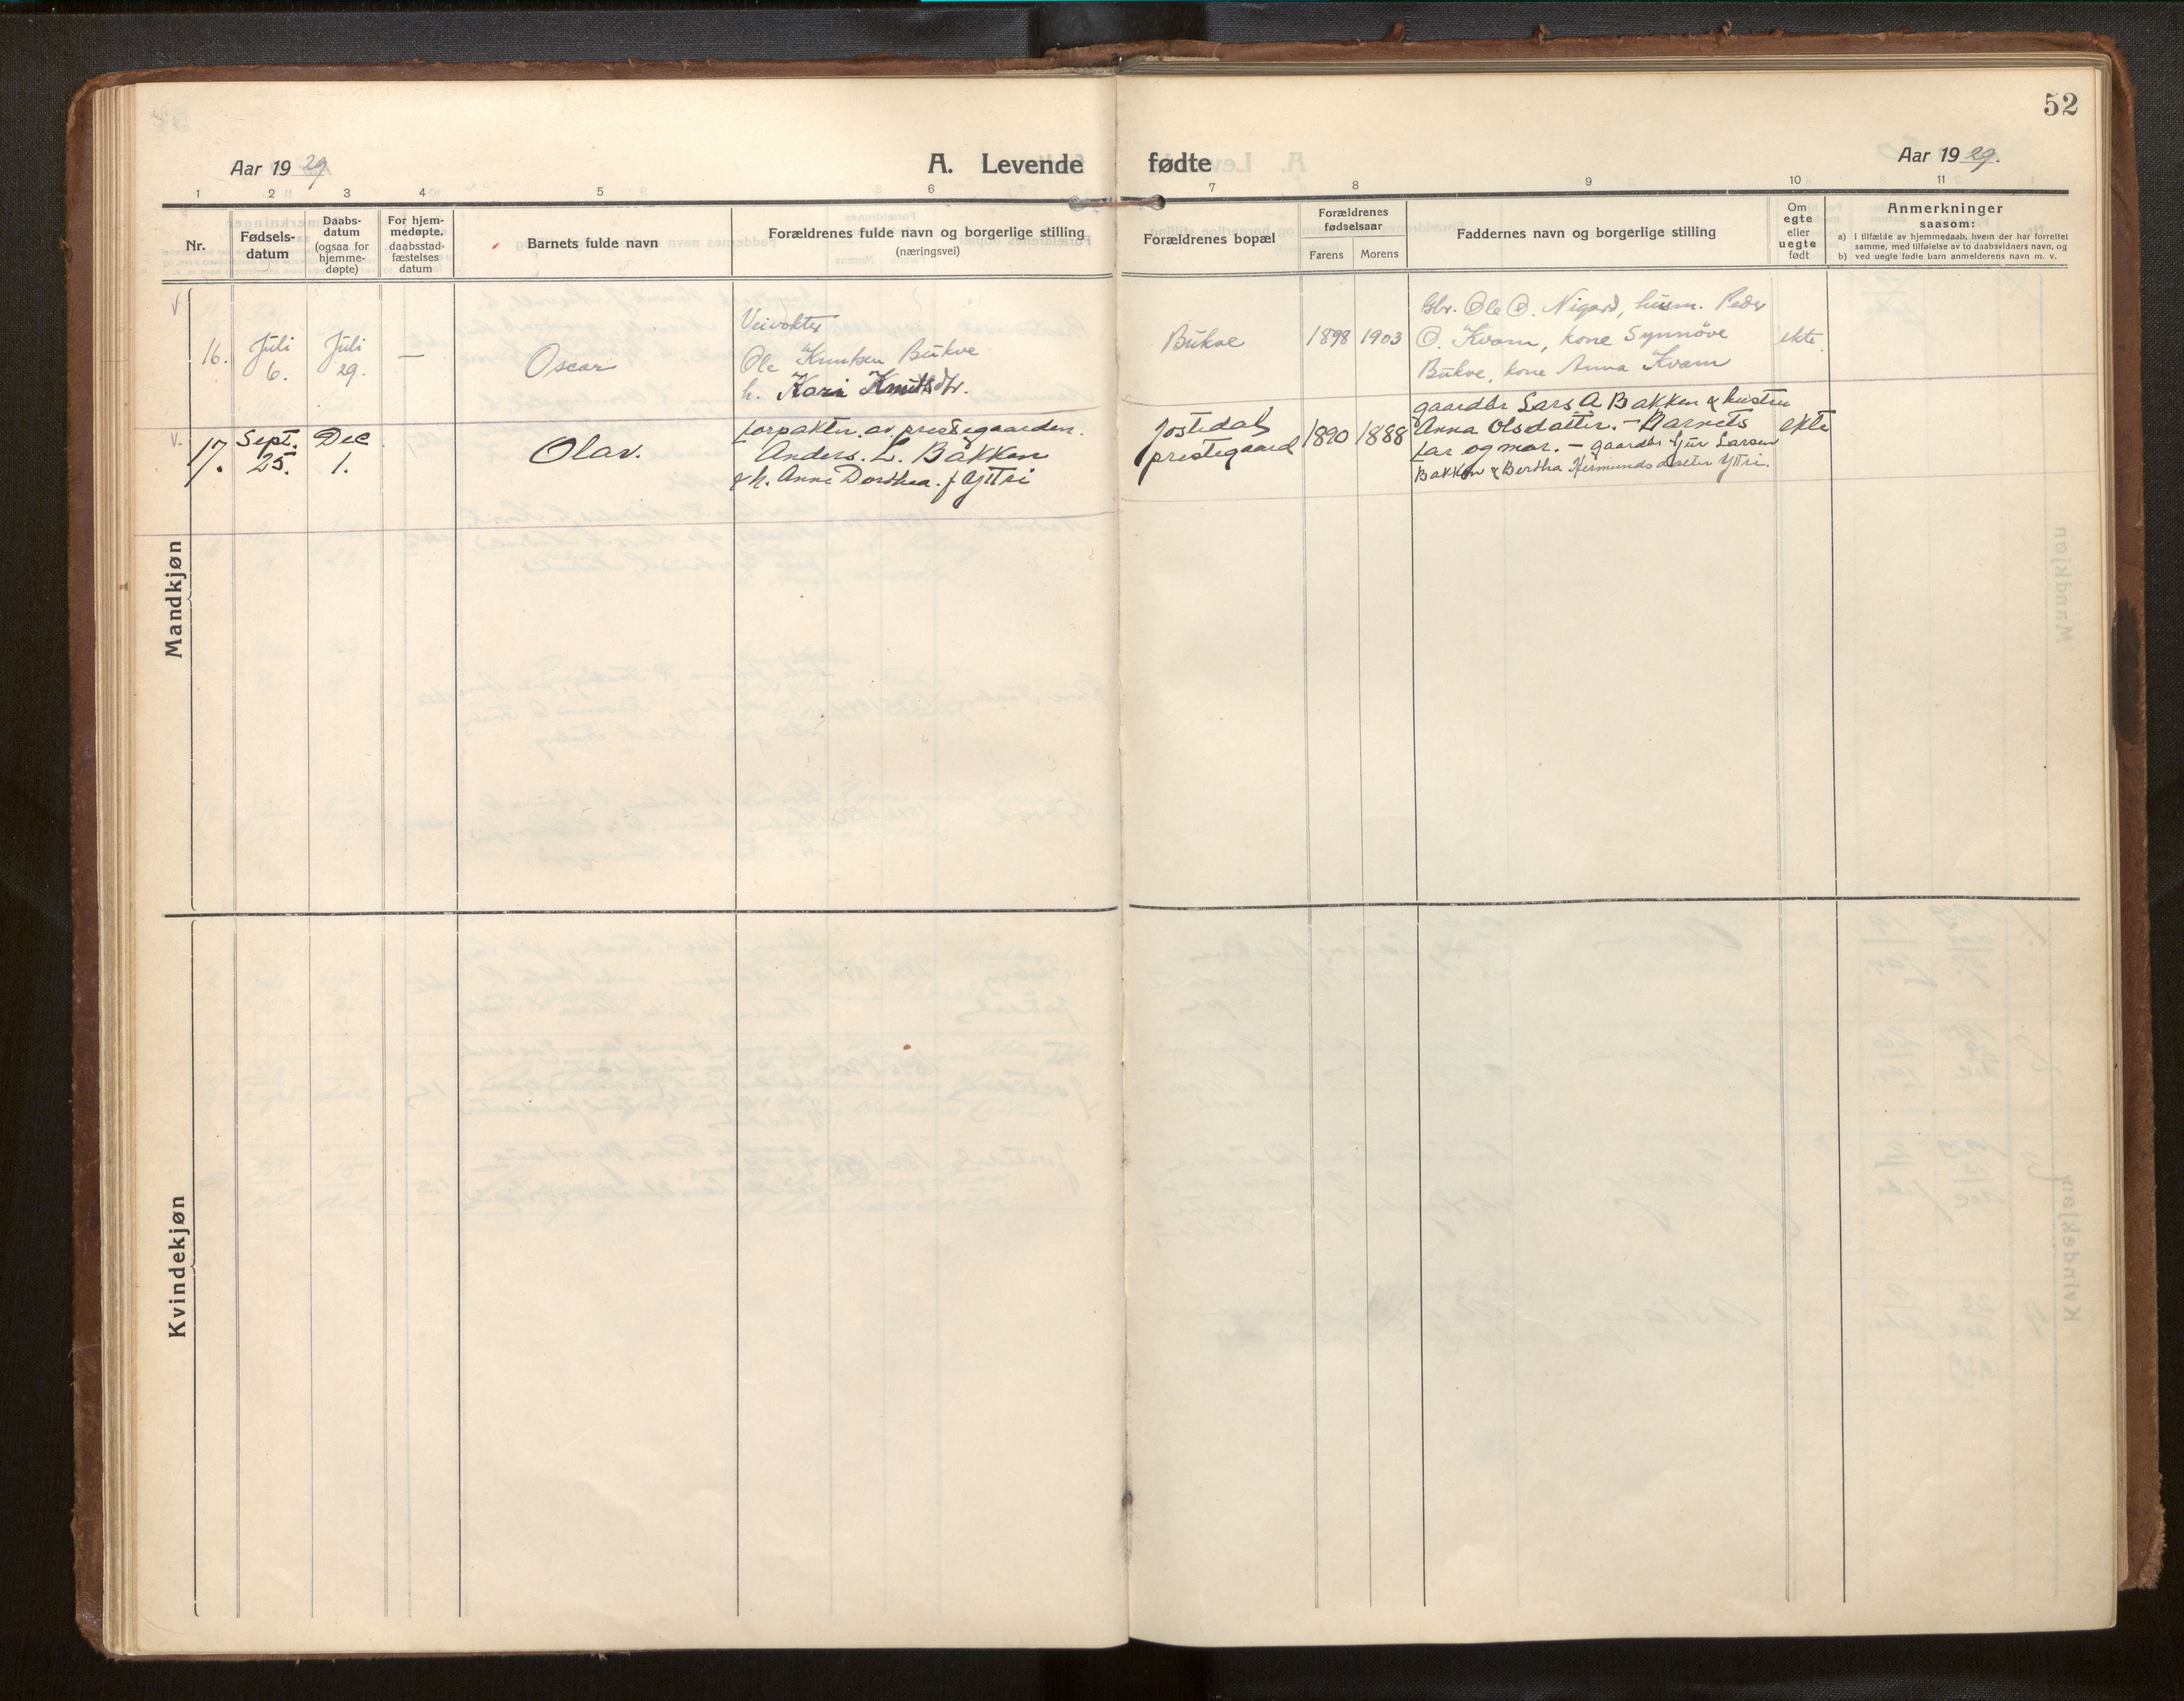 52
Aar 19 29
A. Levende fødte
Aar 19 29.
1 2 3 4 5 6 7 8 9 10 11
Nr.
Fødsels-
datum
Daabs-
datum
(ogsaa for
hjemme-
døpte)
For hjem-
medøpte,
daabsstad-
fæstelses
datum
Barnets fulde navn
Forældrenes fulde navn og borgerlige stilling
(næringsvei)
Forældrenes bopæl
Forældrenes
fødselsaar
Farens Morens
Faddernes navn og borgerlige stilling
Om
egte
eller
uegte
født
Anmerkninger
saasom:
a) i tilfælde av hjemmedaab, hvem der har forrettet
samme, med tilføielse av to daabsvidners navn, og
b) ved uegte fødte barn anmelderens navn m. v.
Mandkjøn
V
16.
Juli
6.
Juli
29.
—
Oscar
Veivokter
Ole Knutsen Bukve
h. Kari Knutsdtr.
Bukve
1898 1903
Gbr. Ole O. Nigard, husm. Peder
O. Kvam, kone Synnöve
Bukve, kone Anna Kvam
ekte.
V.
17.
Sept.
25.
Dec
1.
Olav.
forpakter av prestegaarden.
Anders. L. Bakken
& h. Anna Dorthea. f Yttri
Jostedals
prestegaard
1890 1888
gaardbr Lars A Bakken & hustru
Anna Olsdatter. – Barnets
far og mor. – gaardbr Gjur Larsen
Bakken & Bertha Hermundsdatter Yttri.
ekte
Kvindekjøn